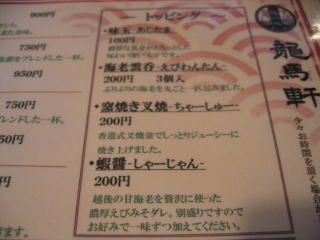 トッピング
・味玉-あじたま-
100円
・海老雲呑-えびわんたん-
200円 3個入
ぷりぷりの海老を丸ごと一匹包みました。
・窯焼き叉焼-ちゃーしゅー-
200円
香港式叉焼釜でしっとりジューシーに
焼き上げました。
・蝦醤-しゃーじゃん-
200円
越後の甘海老を贅沢に使った
濃厚えびみそダレ。別盛りですので
お好みで一味ずつ加えてください。
900円
750円
ブレンドした一杯。
950円
750円
ブレンドした一杯。
龍馬軒
少々お時間を頂く場合が